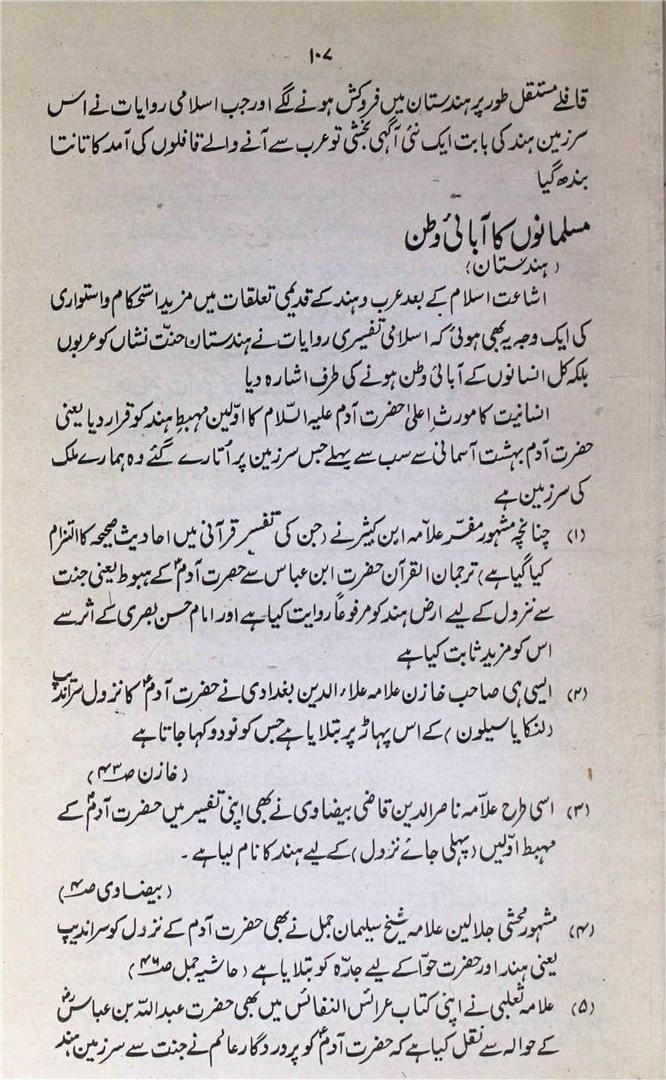 ۱۰۷
قافلے مستقل طور پر ہندستان میں فروکش ہونے لگے اور جب اسلامی روایات نے اس
سرزمین ہند کی بابت ایک نئی آگہی بخشی تو عرب سے آنے والے قافلوں کی آمد کا تانتا
بندھ گیا
مسلمانوں کا آبائی وطن
(ہندستان)
اشاعت اسلام کے بعد عرب و ہند کے قدیمی تعلقات میں مزید استحکام و استواری
کی ایک وجہ یہ بھی ہوئی کہ اسلامی تفسیری روایات نے ہندستان جنت نشاں کو عربوں
بلکہ کل انسانوں کے آبائی وطن ہونے کی طرف اشارہ دیا
انسانیت کا مورث اعلیٰ حضرت آدم علیہ السلام کا اوّلین مہبط ہند کو قرار دیا یعنی
حضرت آدم بہشت آسمانی سے سب سے پہلے جس سرزمین پر اُتارے گئے وہ ہمارے ملک
کی سرزمین ہے
(۱) چنانچہ مشہور مفسّر علّامہ ابن کثیر نے (جن کی تفسیر قرآنی میں احادیث صحیحہ کا التزام
کیا گیا ہے) ترجمان القرآن حضرت ابن عباس سے حضرت آدمؑ کے ہبوط یعنی جنت
سے نزول کے لیے ارض ہند کو مرفوعاً روایت کیا ہے اور امام حسن بصری کے اثر سے
اس کو مزید ثابت کیا ہے
(۲) ایسی ہی صاحب خازن علامہ علاء الدین بغدادی نے حضرت آدمؑ کا نزول سراندیپ
(لنکا یا سیلون) کے اس پہاڑ پر بتلایا ہے جس کو نود و کہا جاتا ہے
(خازن صـ۴۳)
(۳) اسی طرح علّامہ ناصر الدین قاضی بیضاوی نے بھی اپنی تفسیر میں حضرت آدمؑ کے
مہبط اوّلیں (پہلی جائے نزول) کے لیے ہند کا نام لیا ہے ۔
(بیضاوی صـ۴)
(۴) مشہور محشی جلالین علامہ شیخ سلیمان جمل نے بھی حضرت آدم کے نزول کو سراندیپ
یعنی ہند اور حضرت حوّا کے لیے جدّہ کو بتلایا ہے (حاشیہ جمل صـ۴۶)
(۵) علامہ ثعلبی نے اپنی کتاب عرائس النفائس میں بھی حضرت عبد اللہ بن عباسؓ
کے حوالہ سے نقل کیا ہے کہ حضرت آدمؑ کو پروردگار عالم نے جنت سے سرزمین ہند